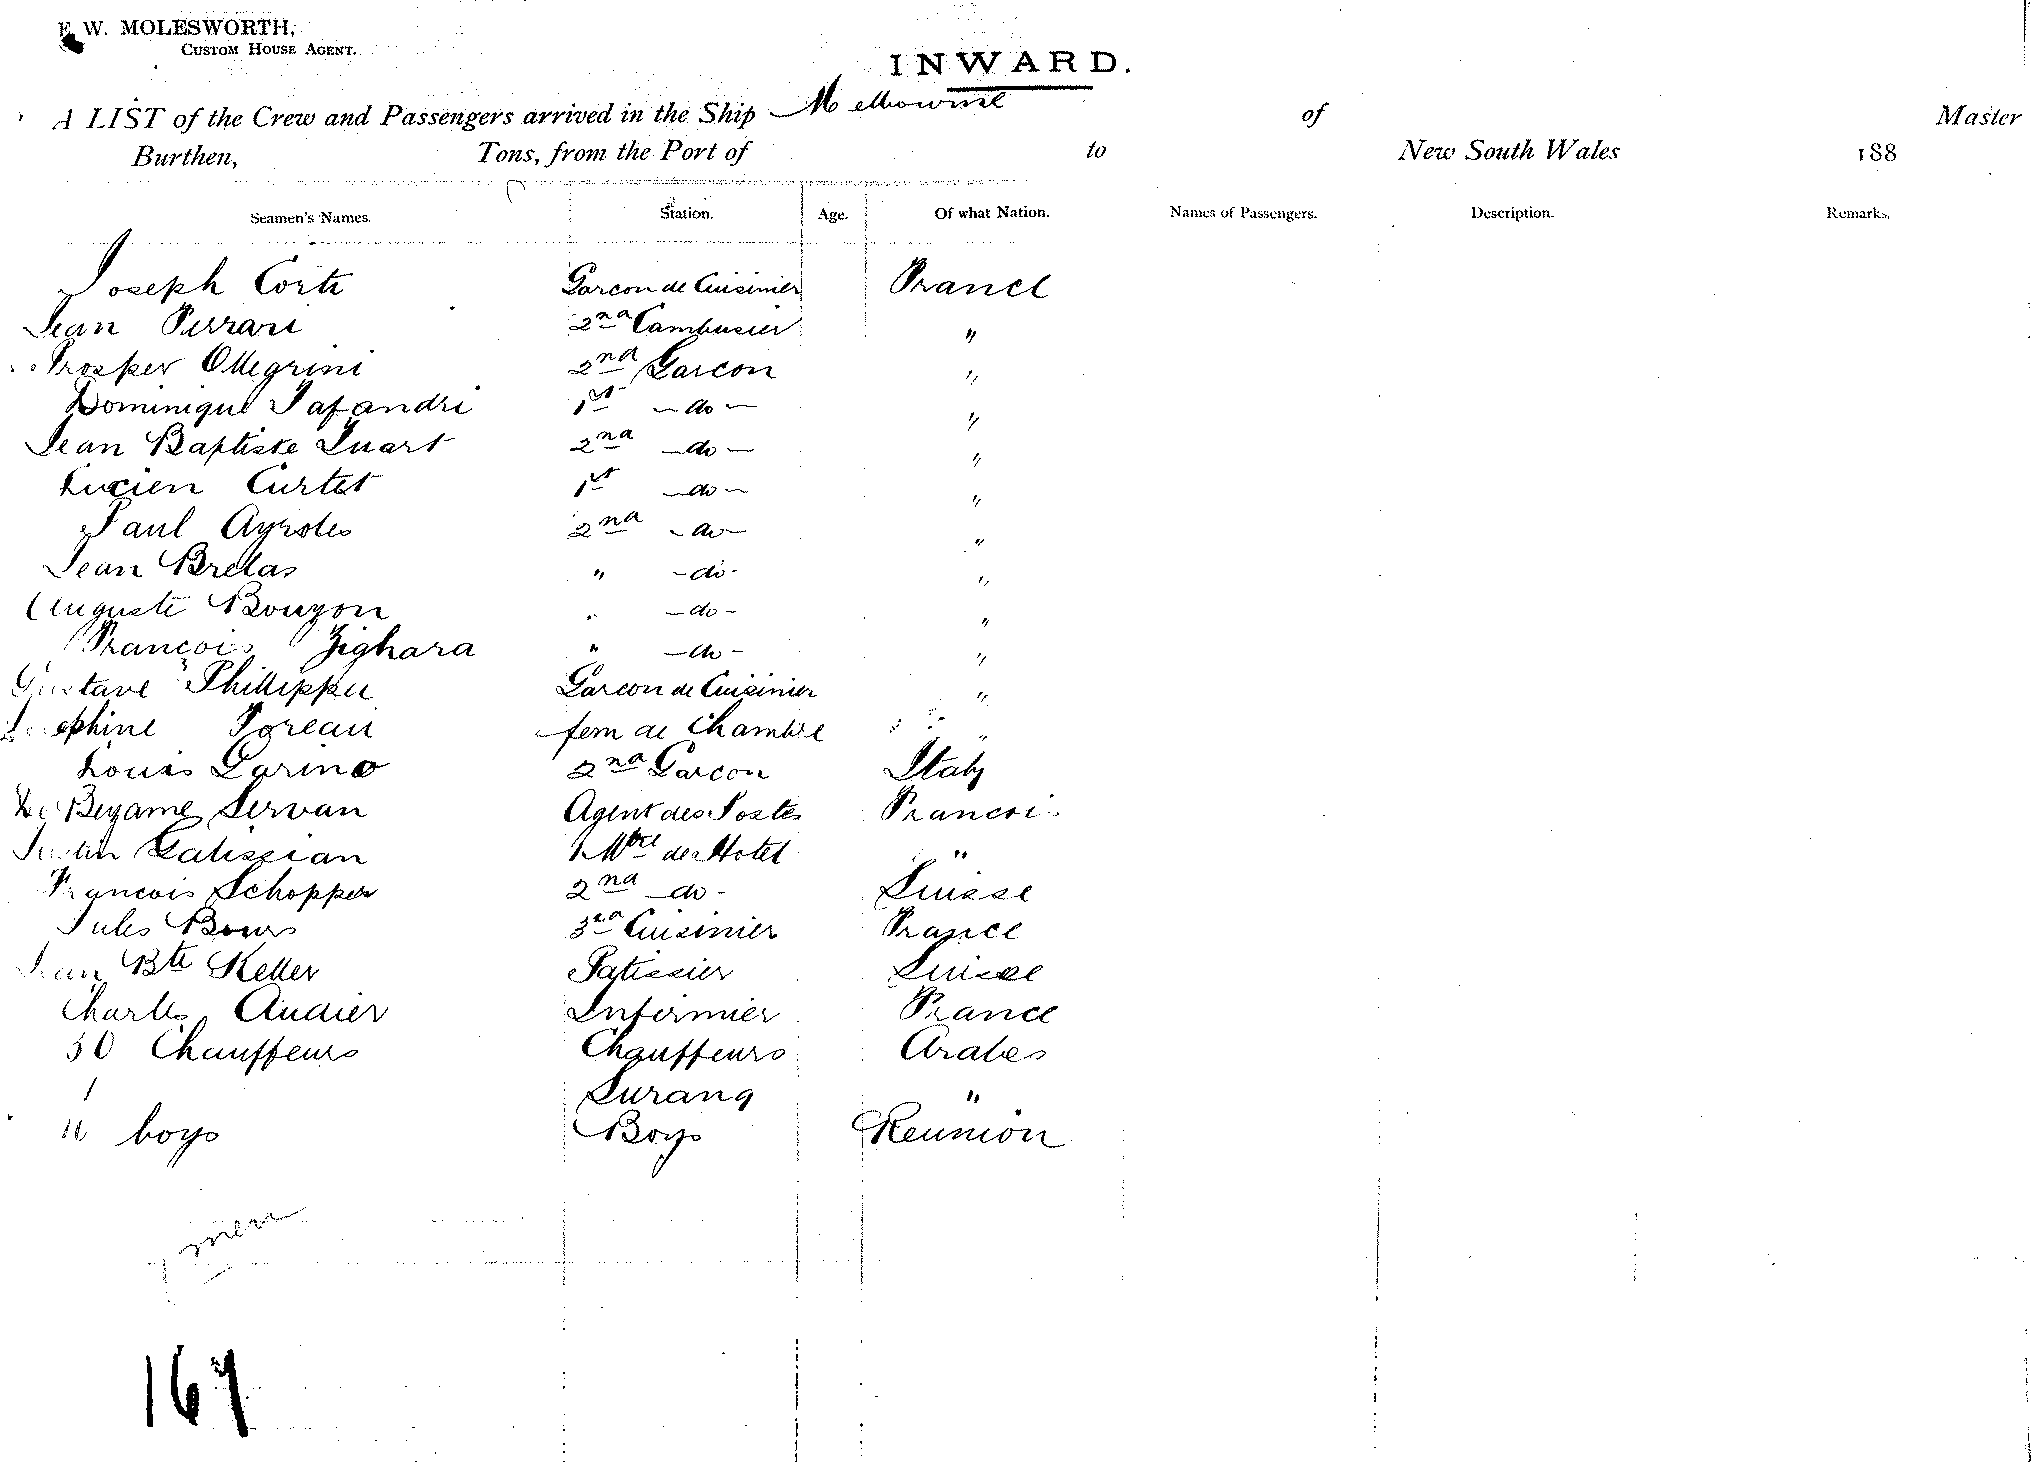 F. W. MOLESWORTH,
CUSTOM HOUSE AGENT.
INWARD.
A LIST of the Crew and Passengers arrived in the Ship Melbourne of Master
Burthen, Tons, from the Port of to New South Wales 188
Seamen's Names. Station. Age. Of what Nation. Names of Passengers. Description. Remarks.
Joseph Corte Garcon de Cuisinier France
Jean Ferrari 2nd Cambusier "
Prosper Ollegrini 2nd Garcon "
Dominique Pafandri 1st - do - "
Jean Baptiste Suart 2nd - do - "
Lucien Curtet 1st - do - "
Paul Ayroles 2nd - do - "
Jean Brelas " - do - "
Auguste Bouyon " - do - "
Francois Zighara " - do - "
Gustave Phillippe Garcon de Cuisinier "
Josephine Foreau fem de Chambre "
Louis Garino 2nd Garcon Italy
De Beyame Servan Agent des Postes Francois
Justin Galissian 1 Mtre de Hotel "
Francois Schopper 2nd - do - Suisse
Jules Bours 3rd Cuisinier France
Jean Bte Keller Patissier Suisse
Charles Audier Infirmier France
50 Chauffeurs Chauffeurs Arabes
1 Surang "
16 boys Boys Reunion
men
167